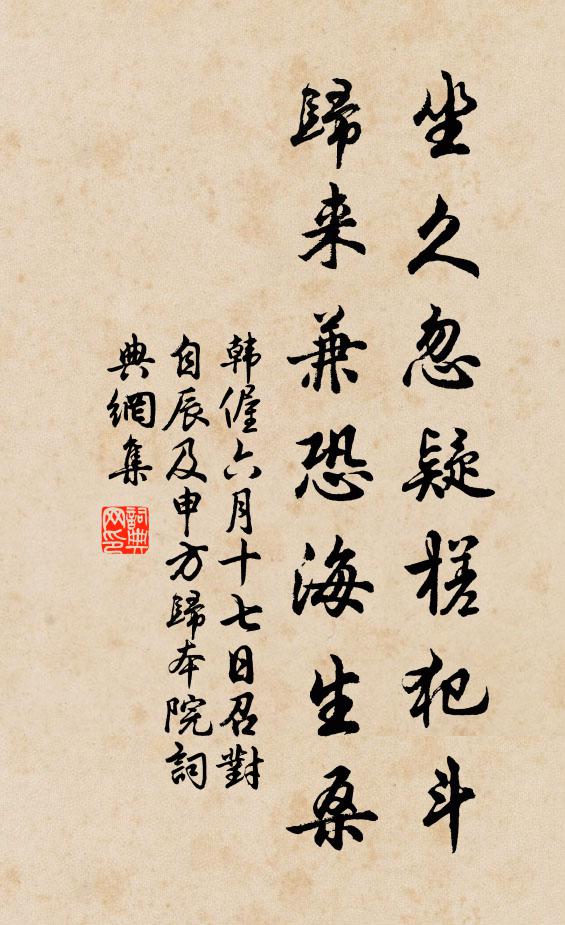 坐久忽疑槎犯斗
歸来兼恐海生桑
韩偓六月十七日召對
自辰及申方歸本院詞
典網集
詞典网印